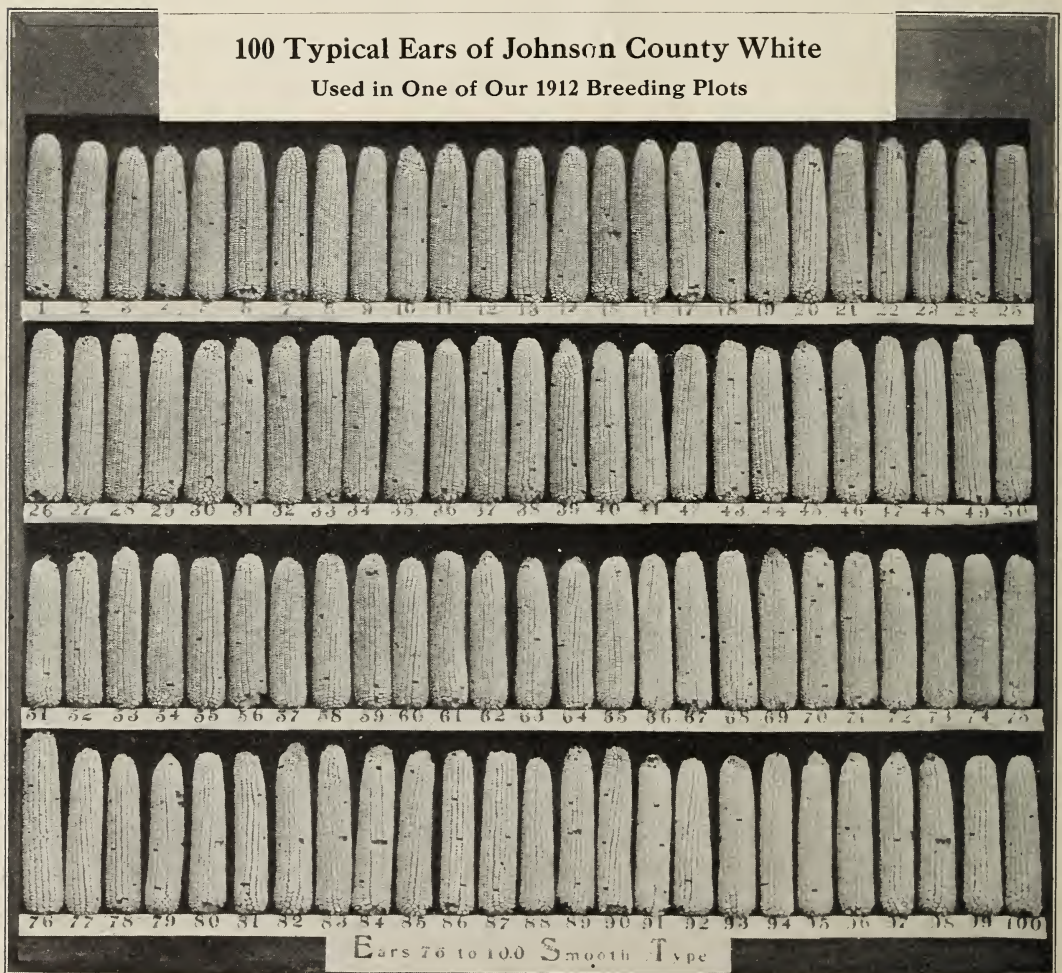 100 Typical Ears of Johnson County White
Used in One of Our 1912 Breeding Plots
1 2 3 4 5 6 7 8 9 10 11 12 13 14 15 16 17 18 19 20 21 22 23 24 25
26 27 28 29 30 31 32 33 34 35 36 37 38 39 40 41 42 43 44 45 46 47 48 49 50
51 52 53 54 55 56 57 58 59 60 61 62 63 64 65 66 67 68 69 70 71 72 73 74 75
76 77 78 79 80 81 82 83 84 85 86 87 88 89 90 91 92 93 94 95 96 97 98 99 100
Ears 76 to 100 Smooth Type